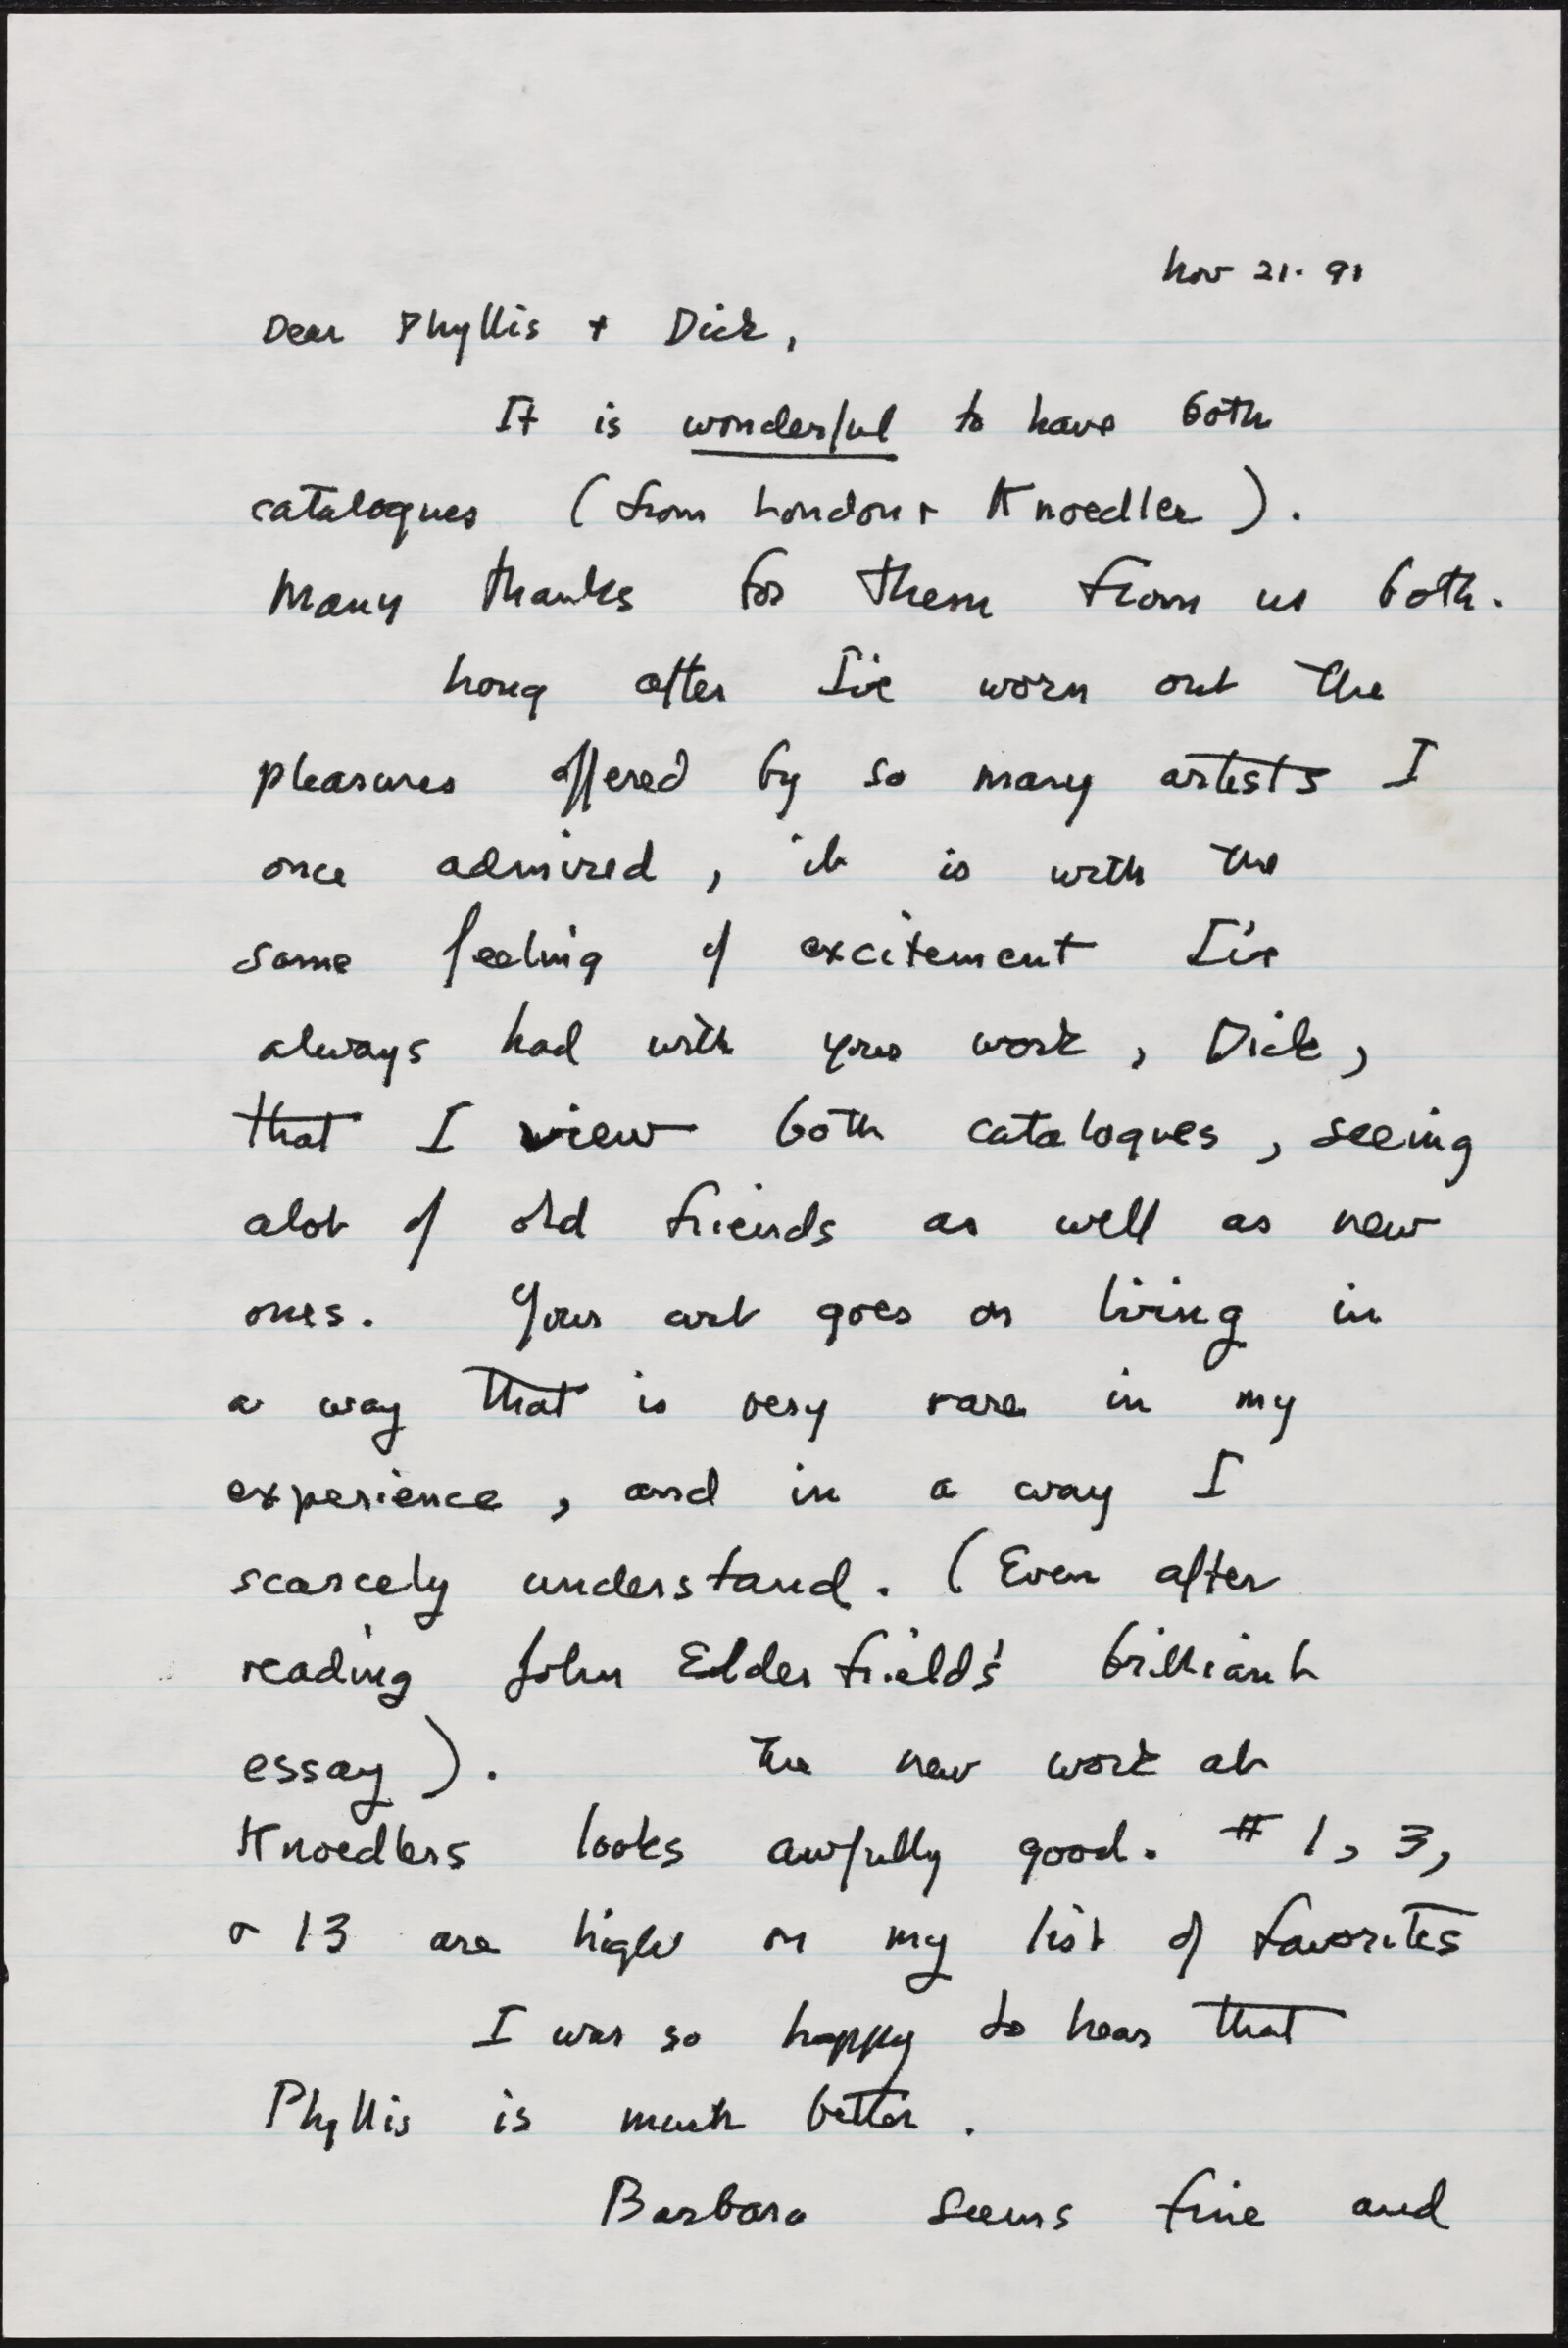 Nov 21. 91
Dear Phyllis + Dick,
It is wonderful to have both
catalogues (from London + Knoedler).
Many thanks for them from us both.
Long after I've worn out the
pleasures offered by so many artists I
once admired, it is with the
same feeling of excitement I've
always had with your work, Dick,
that I view both catalogues, seeing
alot of old friends as well as new
ones. Your art goes on living in
a way that is very rare in my
experience, and in a way I
scarcely understand. (Even after
reading John Elderfield's brilliant
essay). The new work at
Knoedlers looks awfully good. # 1, 3,
+ 13 are high on my list of favorites
I was so happy to hear that
Phyllis is much better.
Barbara seems fine and